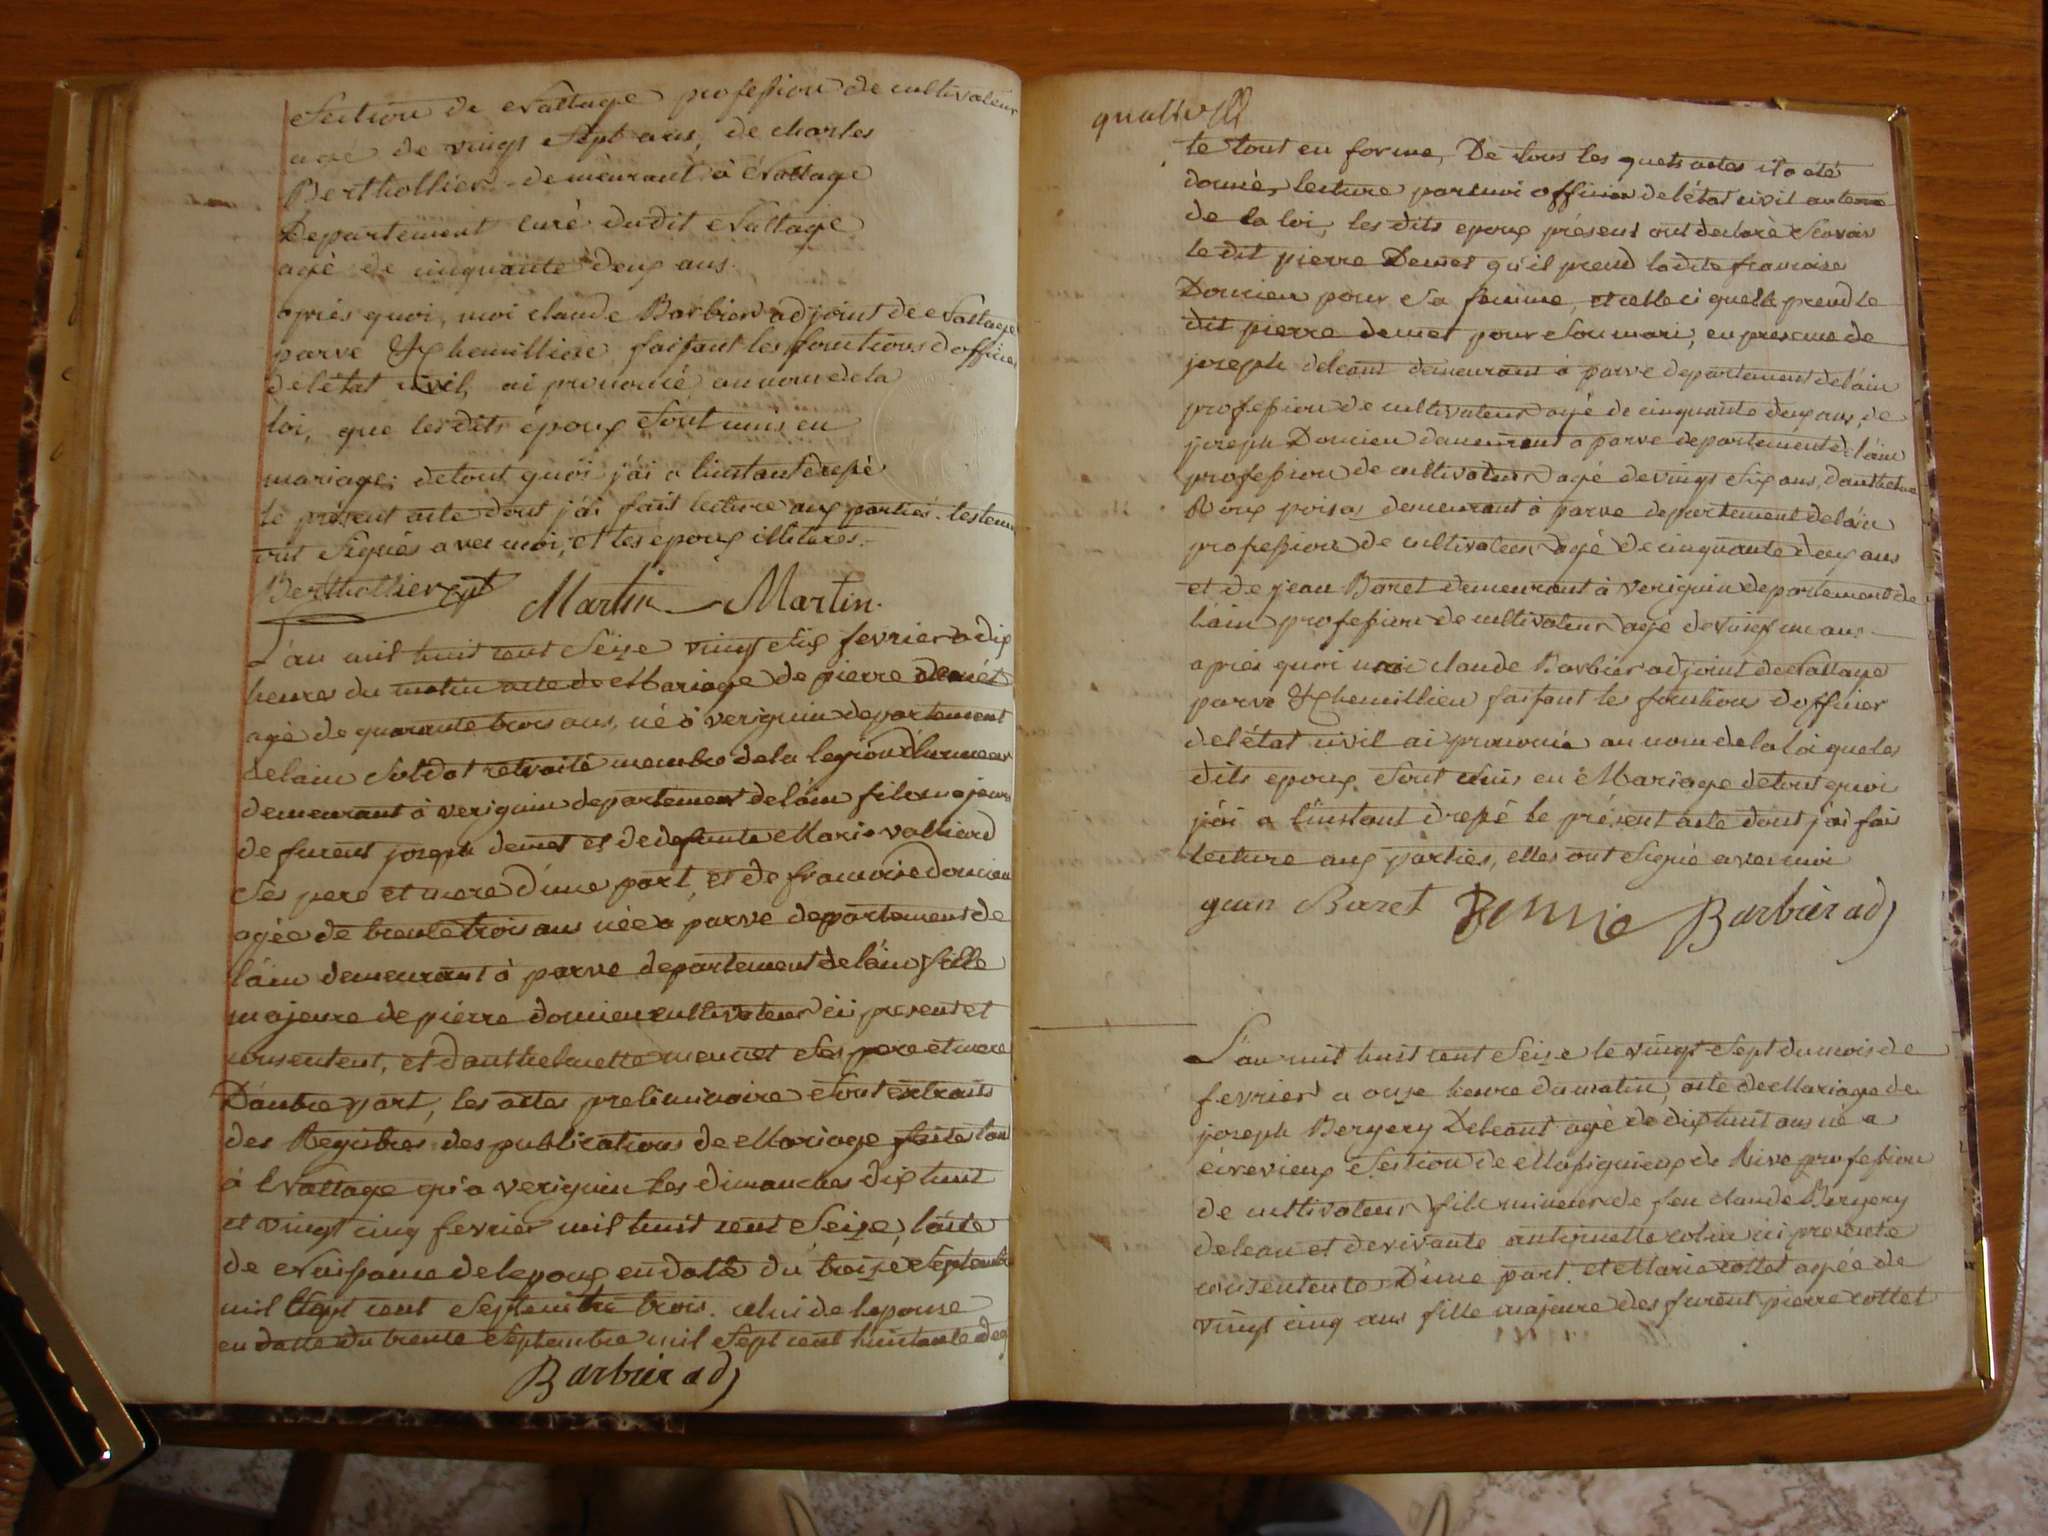 Section de Nattage profession de cultivateur
agé de vingt sept ans, de charles
Berthollier demeurant à Nattage
Departement curé dudit Nattage
agé de cinquante deux ans.
après quoi, moi claude Barbier adjoint de Nattage
parve & chemillieu faisant les fonctions d officier
de létat civil, ai prononcé au nom de la
loi, que lesdits époux sont unis en
mariage; de tout quoi j'ai a linstant drepé
le présent acte dont j'ai fait lecture aux parties. les tem
ont signés avec moi, et les époux illiterés.
Berthollier Martin Martin.
L'an mil huit cent seize vingt six fevrier a dix
heures du matin acte de Mariage de pierre demet
agé de quarante trois ans, né à verignin departement
de lain soldat retraité membre de la legion d'hurneur
demeurant à verignin departement de láin fils majeur
de furent joseph demet et de defunte Marie valliend
ses pere et mere d'une part, et de francoise doncieu
agée de trente trois ans née a parve departement de
láin demeurant à parve departement de láin fille
majeure de pierre doncieu cultivateur ici present et
consentent, et d'anthelmette mennet ses pere et mere
D'autre part, les actes preliminaire sont extraits
des Registres des publications de Mariage faite tant
à Nattage qu'a verignin les dimanches dix huit
et vingt cinq fevrier mil huit cent seize, l'acte
de Naissance de lepoux en datte du treize septembre
mil sept cent septente trois. celui de lepouse
en datte du trente septembre mil sept cent huitante deux
Barbier adj
quatre
le tout en forme, De tous les quels actes il a été
donnés lecture par moi officier de létat civil au terme
de la loi, les dits epoux présent ont declaré scavoir
le dit pierre Demet qu'il prend ladite francoise
Doncieu pour sa femme, et celle ci quelle prend le
dit pierre demet pour son mari, en presence de
joseph deleant demeurant à parve departement de láin
profession de cultivateur agé de cinquante deux ans, de
joseph Doncieu demeurant a parve departement de láin
profession de cultivateur agé de vingt six ans, d'anthelme
Roux poisat demeurant à parve departement de láin
profession de cultivateur agé de cinquante deux ans
et de jean Baret demeurant à verignin departement de
láin profession de cultivateur agé de vingt un ans
après quoi moi claude Barbier adjoint de Nattage
parve & chemillieu faisant les fonctions d officier
de létat civil ai prononcé au nom de la loi que les
dits epoux sont unis en Mariage de tout quoi
j'ai a l'instant drepé le présent acte dont j'ai fait
lecture aux parties, elles ont signé avec moi
jean Baret Barbier adj
L'an mil huit cent seize le vingt sept du mois de
fevrier a onze heure du matin, acte de Mariage de
joseph Bergery Deleant agé de dix huit ans né a
ecrevieux Section de Massignieux de Rive profession
de cultivateur fils mineur de feu claude Bergery
deleau et de vivante antoinette colin ici presente
consentente D'une part. et Marie cottet agée de
vingt cinq ans fille majeure des furent pierre cottet